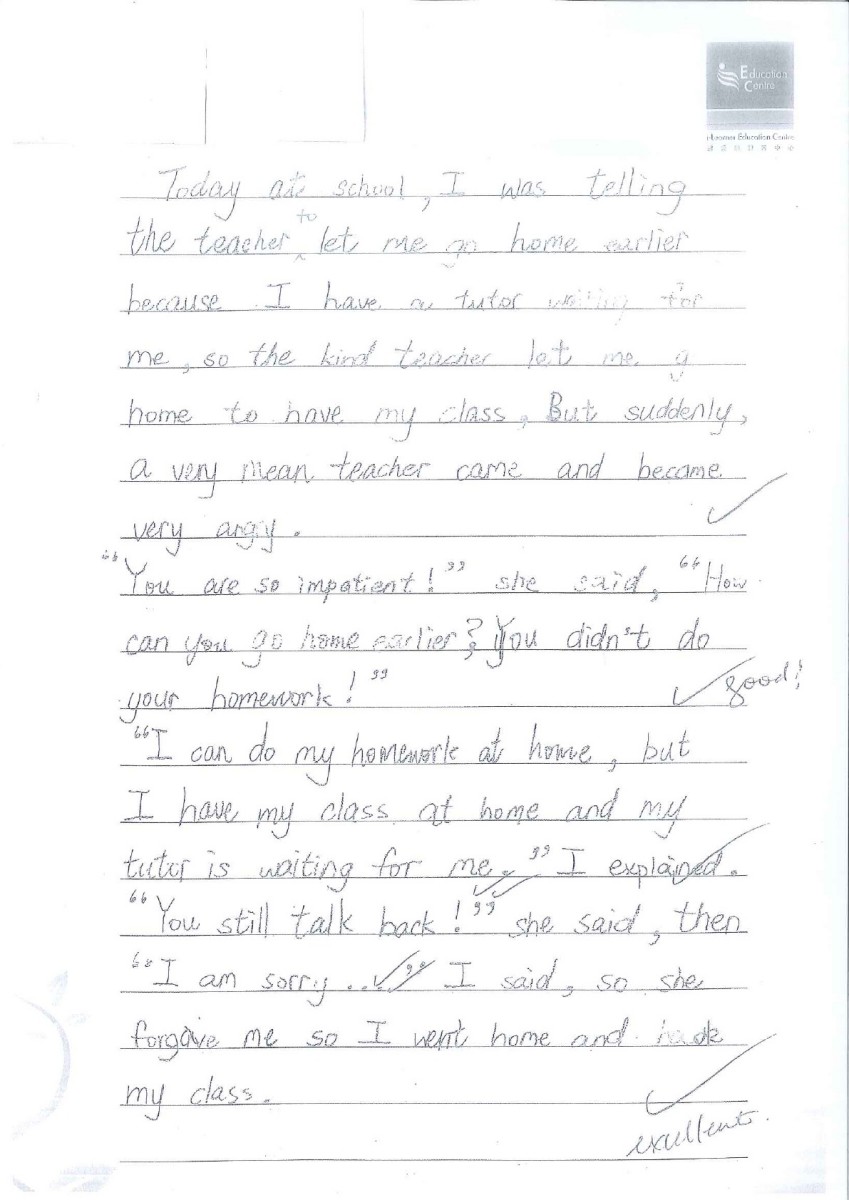 Education
Centre
Education Centre
Today at school, I was telling
to
the teacher ^ let me go home earlier
because I have a tutor waiting for
me, so the kind teacher let me g
home to have my class. But suddenly,
a very mean teacher came and became
very angy.
"You are so impatient!" she said, "How
can you go home earlier? You didn't do
your homework!"
good!
"I can do my homework at home, but
I have my class at home and my
tutor is waiting for me." I explained.
"You still talk back!" she said, then
"I am sorry..." I said, so she
forgave me so I went home and
my class.
excellent.